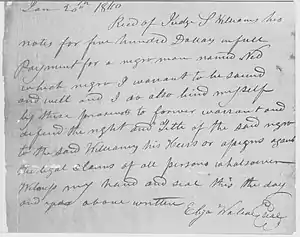 Jan 20th 1860
Recd of Judge S Williams his
notes for five hundred Dollars in full
Payment for a negro man named Ned
which negro I warrant to be sound
and well and I do also bind myself
by these presents to forever warrant and
defend the right and Title of the said negro
to the said Williams his Heirs or assigns against
the legal Claims of all persons whatsoever
Witness my hand and seal this the day
and year above written
Eliza Wallace Seal